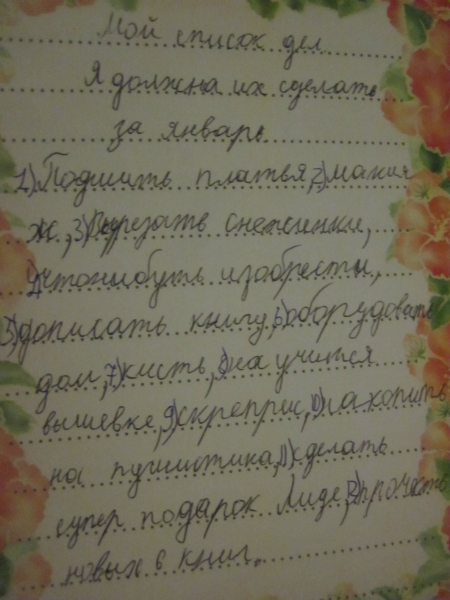 Мой список дел
Я должна их сделать
за январь
1)Подшить платья,2)макия
ж,3)Вырезать снежинки,
4)чтонибуть изобрести,
5)дописать книгу,6)оборудовать
дом,7)кисть,8)на учится
вышевке,9)скрепри,10)накопить
на пушистика,11)сделать
супер подарок Лиде,12)прочесть
новых 6 книг.